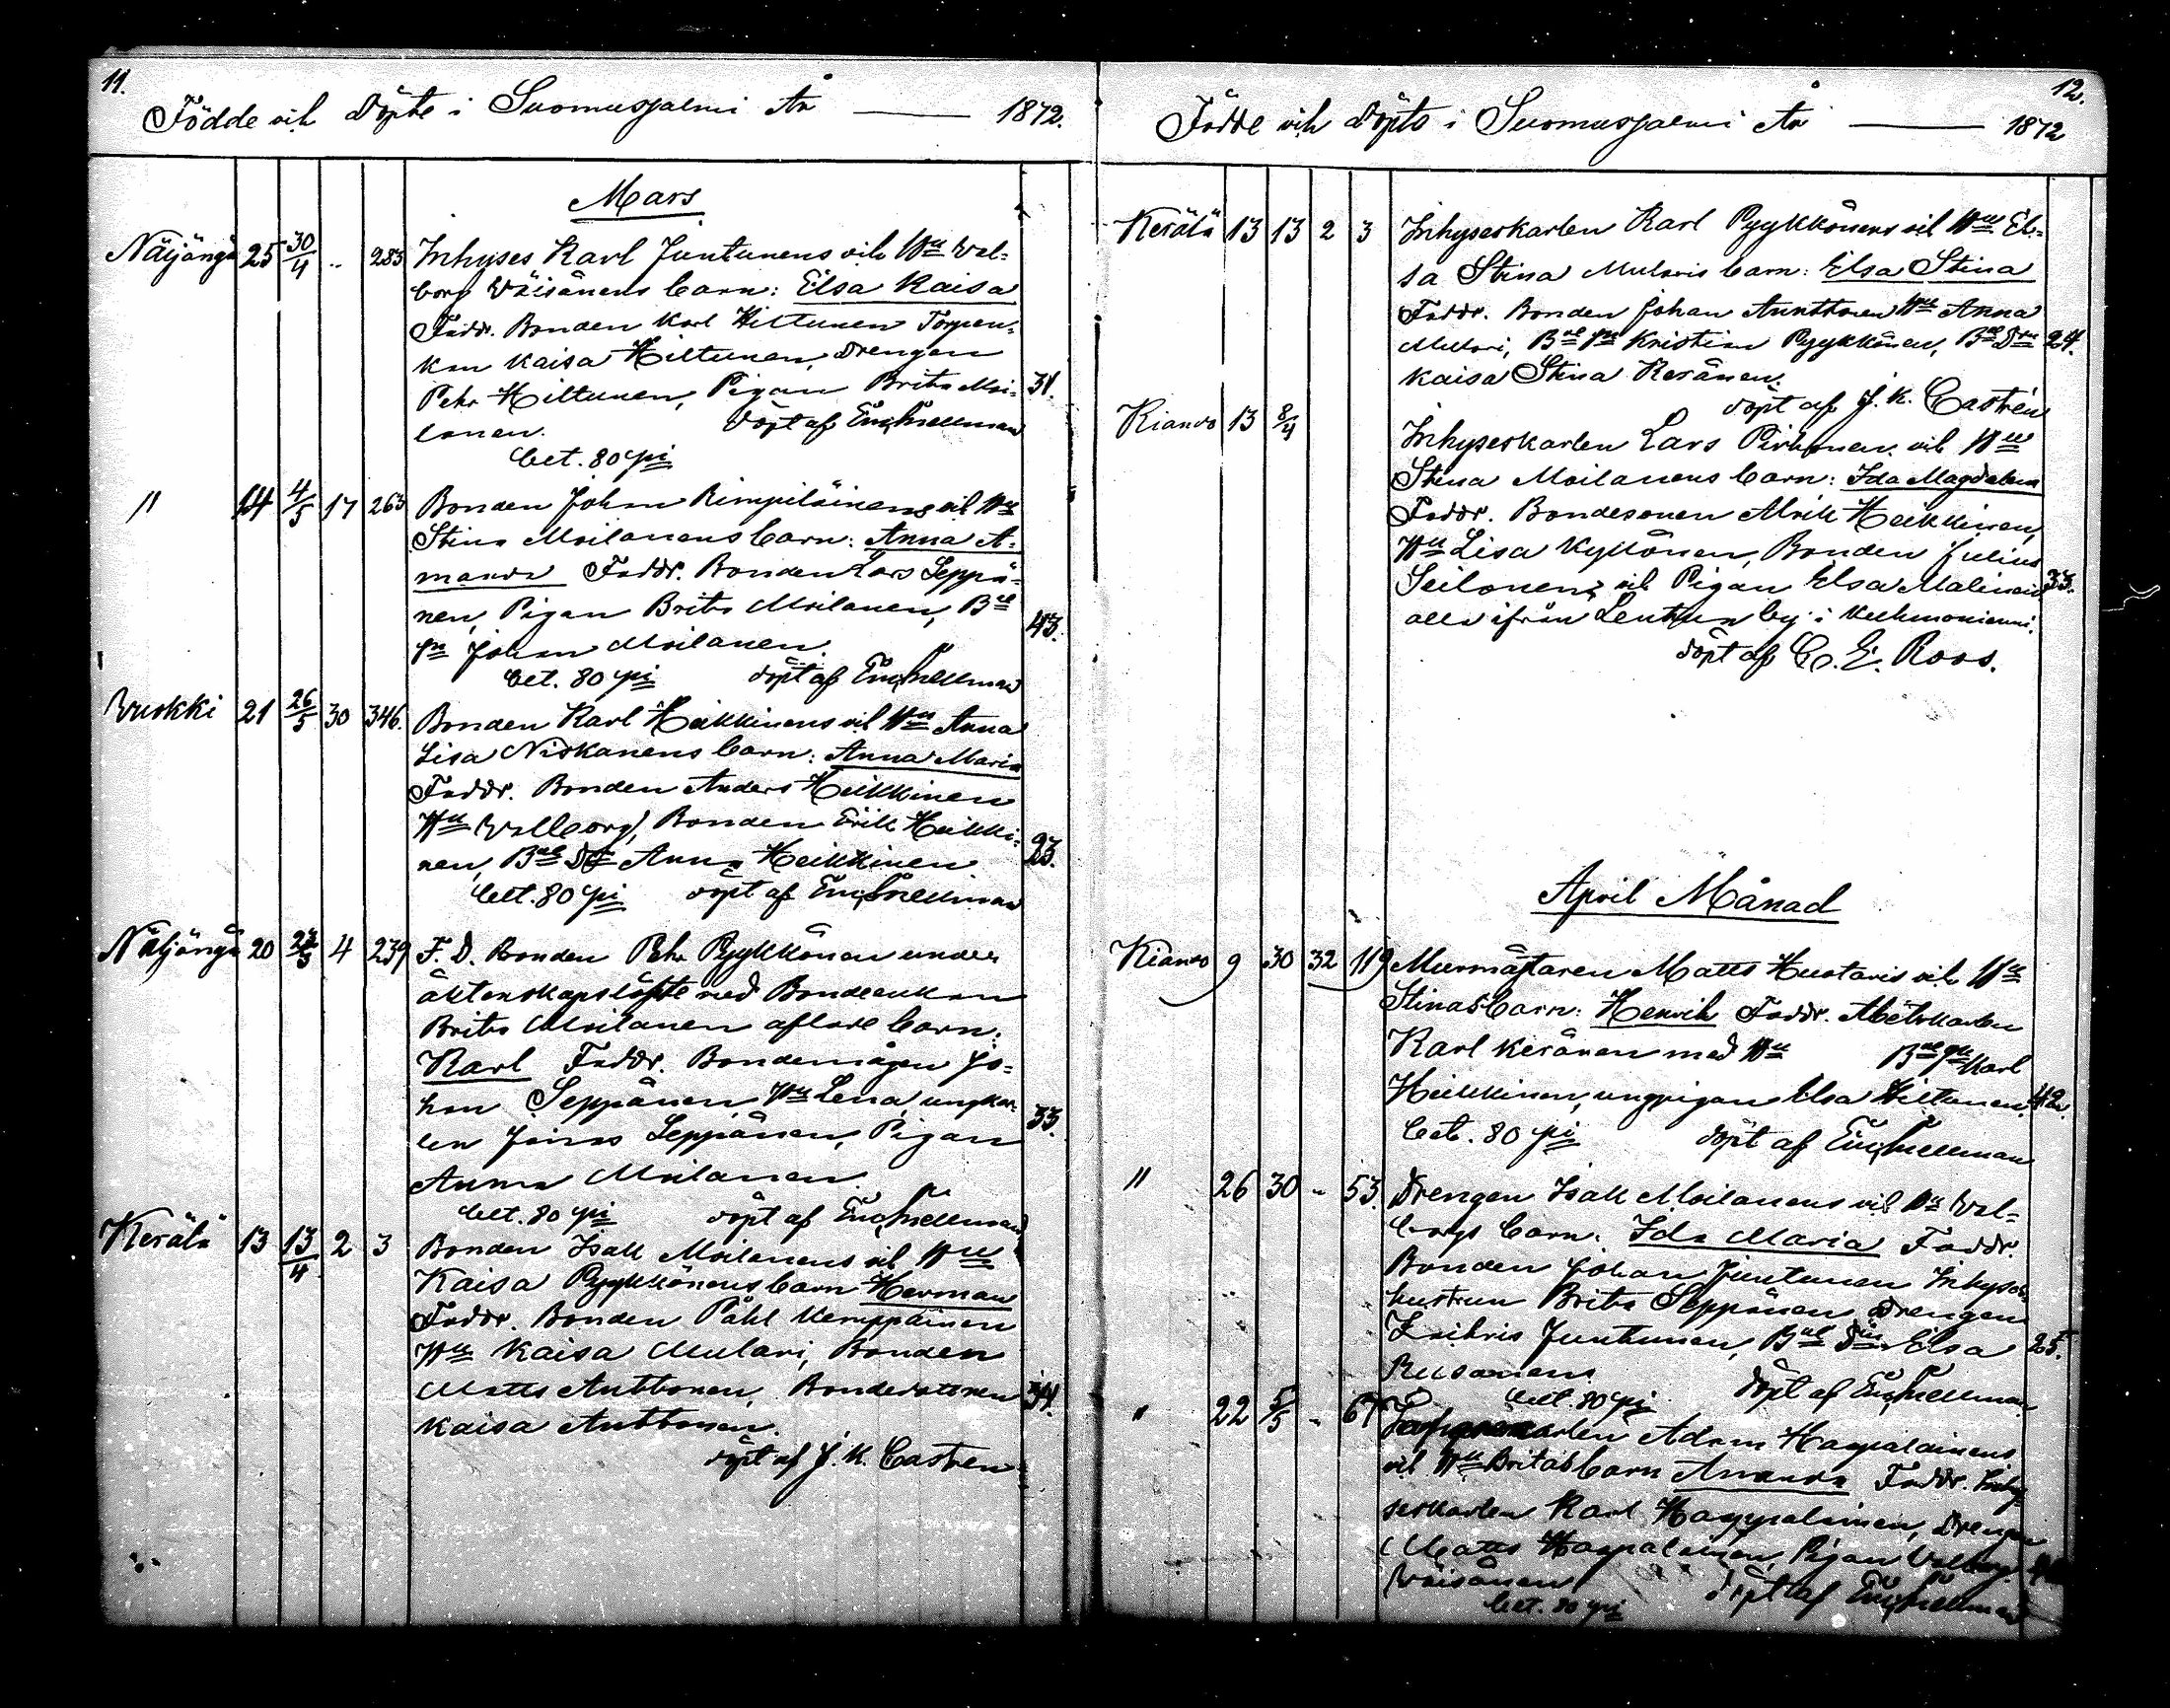 11.
Födde och Döpte i Suomusjalmi År — 1872.
Mars
Näljängä 25 30/4 .. 283 Inhyses Karl Juntunens och Hu Wal=
borg Wäisänens barn: Elsa Kaisa
Faddr. Bonden Karl Hiltunen Torpen=
kan Kaisa Hiltunen, Drengen
Pehr Hiltunen, Pigan Brita Moi= 31.
lanen. Döpt af Em. Snellman
bet. 80 pi
" 14 4/5 17 263 Bonden Johan Rimpiläinens och Hu
Stina Moilanens barn: Anna A=
manda Faddr. Bonden Lars Seppä=
nen, Pigan Brita Moilanen, Bde 43.
sn Johan Moilanen.
bet. 80 pi döpt af Em. Snellman
Wuokki 21 26/5 30 346. Bonden Karl Heikkinens och Hu Anna
Lisa Niskanens barn: Anna Maria
Faddr. Bonden Anders Heikkinen
Hu Wallborg, Bonden Erik Heikki=
nen, Bde Dr Anna Heikkinen 23.
bet. 80 pi döpt af Em. Snellman
Näljängä 20 4 239 F. D. Bonden Pehr Pyykkönen under
äktenskapslöfte med Bondeenkan
Brita Moilanen aflade barn:
Karl Faddr. Bondemågen Jo=
han Seppänen, Hu Lena, ungkar=
len Jonas Seppänen, Pigan 33.
Anna Moilanen.
bet. 80 pi döpt af Em. Snellman
Kerälä 13 13/4 2 3 Bonden Isak Moilanens och Hu
Kaisa Pyykkönens barn Herman
Faddr. Bonden Påhl Kemppainen
Hu Kaisa Mulari, Bonden
Matts Anttonen, Bondedottren 34.
Kaisa Anttonen.
döpt af J. K. Castrén
12.
Födde och Döpte i Suomusjalmi År — 1872
Kerälä 13 13 2 3 Inhyseskarlen Karl Pyykkönens och Hu El=
sa Stina Mularis barn: Elsa Stina
Faddr. Bonden Johan Anttonen Hu Anna
Mulari, Bde sn Kristian Pyykkönen, Bde Dr 24.
Kaisa Stina Keränen.
döpt af J. K. Castrén
Kiando 13 8/4 Inhyseskarlen Lars Pirhonen och Hu
Stina Moilanens barn: Ida Magdalena
Faddr. Bondesonen Alrik Heikkinen,
Hu Lisa Kyllönen, Bonden Julius
Seilonen och Pigan Elsa Malinen 33.
alla ifrån Lentua by i Kuhmoniemi.
döpt af C. E. Roos.
April Månad
Kiando 9 30 32 119 Murmästaren Matts Huotaris och Hu
Stinas barn: Henrik Faddr.
Karl Keränen med Hu Bde sn Karl
Heikkinen, ungpigan Elsa Hiltunen. 42.
bet. 80 pi döpt af Em. Snellman
" 26 30 - 53. Drengen Isak Moilanens och Hu Wal=
borgs barn: Ida Maria Faddr.
Bonden Johan Juntunen Inhyses=
hustrun Brita Seppänen Drengen
Zachris Juntunen, Bde Dr Elsa 25.
Rusanen.
bet. 80 pi döpt af Em. Snellman
" 22 5/5 - 67 Adam Haapalainens
och Hu Britas barn Amanda Faddr. Inhy=
seskarlen Karl Haapalainen, Drengen
Matts Haapalainen, Pigan Walborg
Wäisänen döpt af Em. Snellman
bet. 80 pi